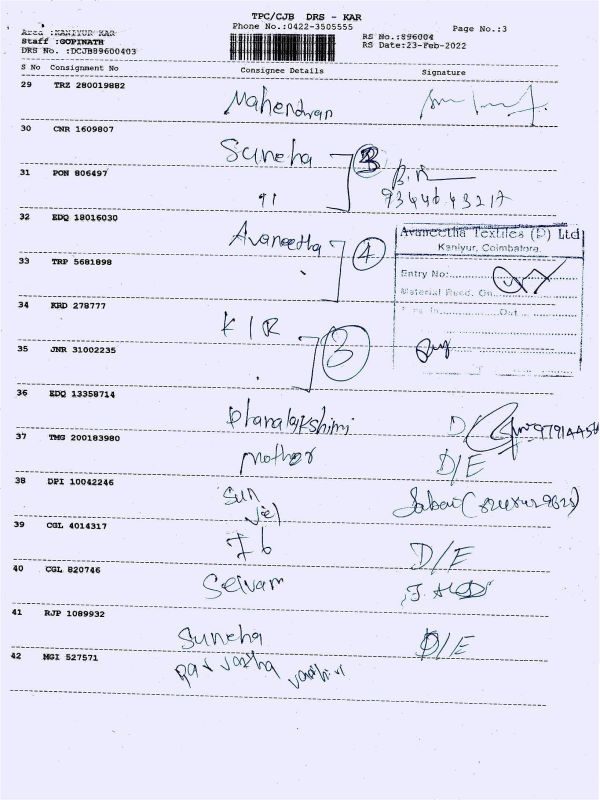 TPC/CJB DRS - KAR
Phone No.:0422-3505555
Page No.:3
Area :KANIYUR KAR
Staff :GOPINATH
DRS No. :DCJB89600403
RS No.:896004
RS Date:23-Feb-2022
S No Consignment No Consignee Details Signature
29 TRZ 280019882
Mahendran
30 CNR 1609807
Suneha
31 PON 806497
93446 43217
32 EDQ 18016030
Avaneetha 4
Avaneetha Textiles (P) Ltd
Kaniyur, Coimbatore.
33 TRP 5681898
Entry No:
Material Recd. On
34 KRD 278777
K I R
Out
3
35 JNR 31002235
36 EDQ 13358714
Dhanalakshimi
37 TMG 200183980
Mother D/E
38 DPI 10042246
Sun
39 CGL 4014317
D/E
40 CGL 820746
Selvam
41 RJP 1089932
Suneha D/E
42 MGI 527571